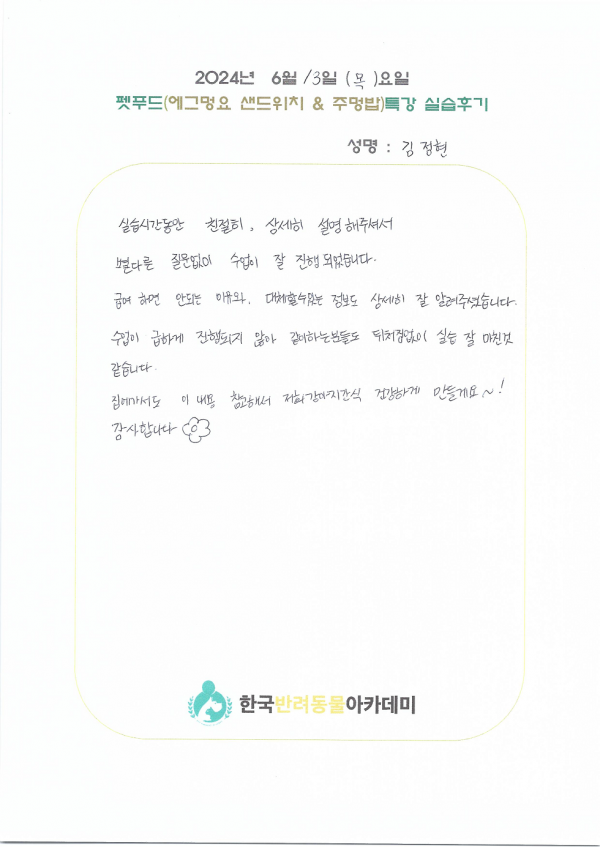 2024년 6월 13일 (목)요일
펫푸드(에그멍요 샌드위치 & 주멍밥)특강 실습후기
성명 : 김정현
실습시간동안 친절히, 상세히 설명해주셔서
별다른 질문없이 수업이 잘 진행되었습니다.
급여하면 안되는 이유와, 대체할수있는 정보도 상세히 잘 알려주셨습니다.
수업이 급하게 진행되지 않아 같이하는분들도 뒤처짐없이 실습 잘 마친것
같습니다.
집에가서도 이 내용 참고해서 저희강아지간식 건강하게 만들게요~!
감사합니다
한국반려동물아카데미